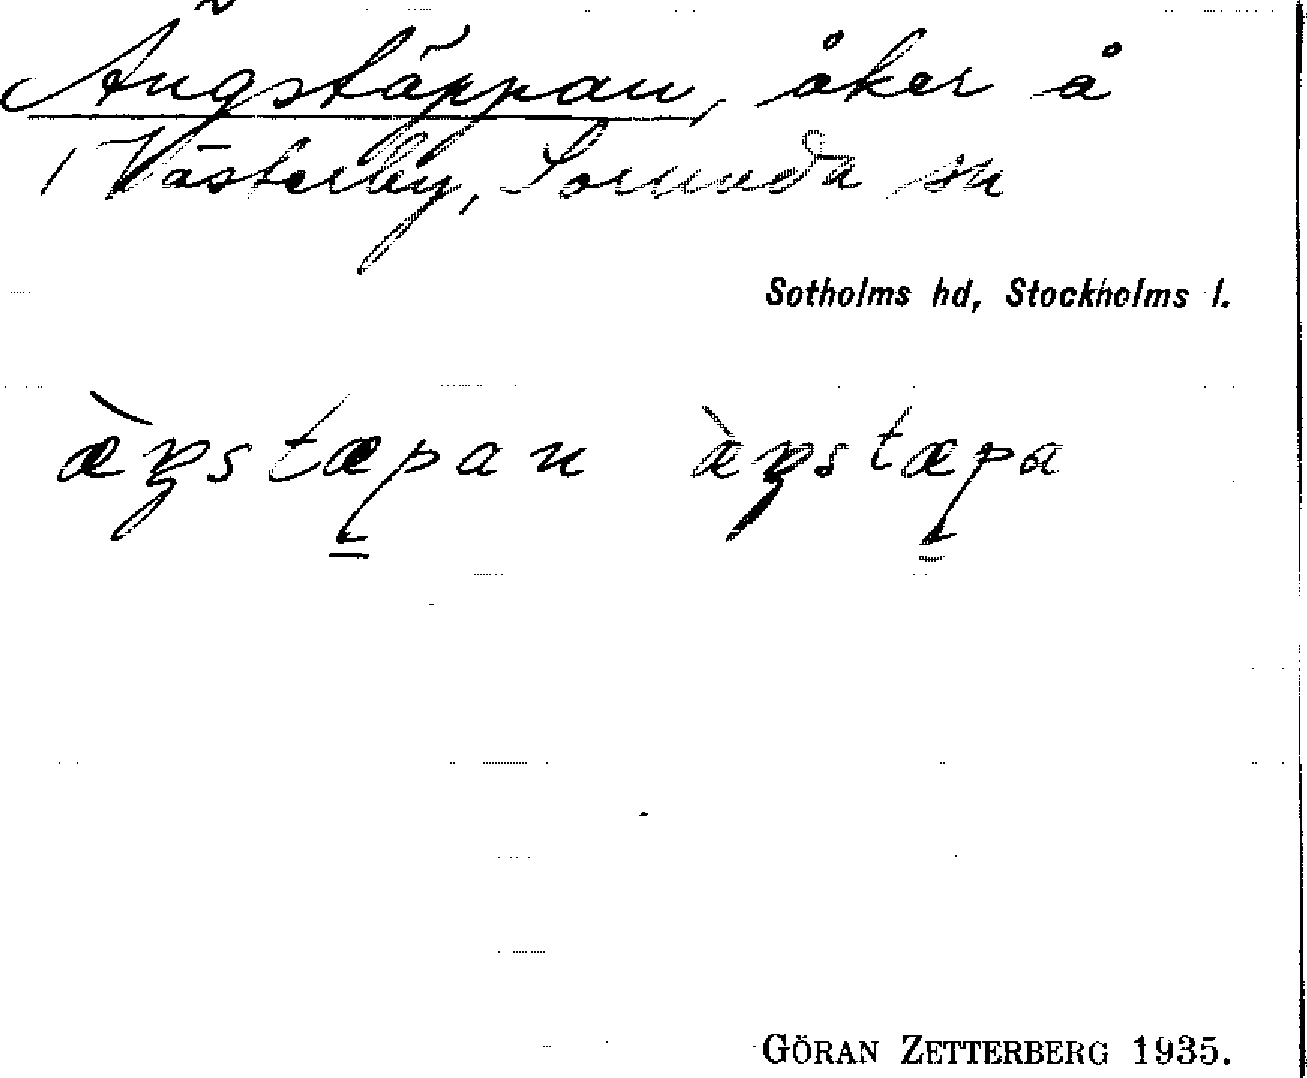 Ängstäppan, åker å
/ Västerby, Sorunda sn
Sotholms hd, Stockholms l.
æ̀ŋstæpan æ̀ŋstæpa
GÖRAN ZETTERBERG 1935.